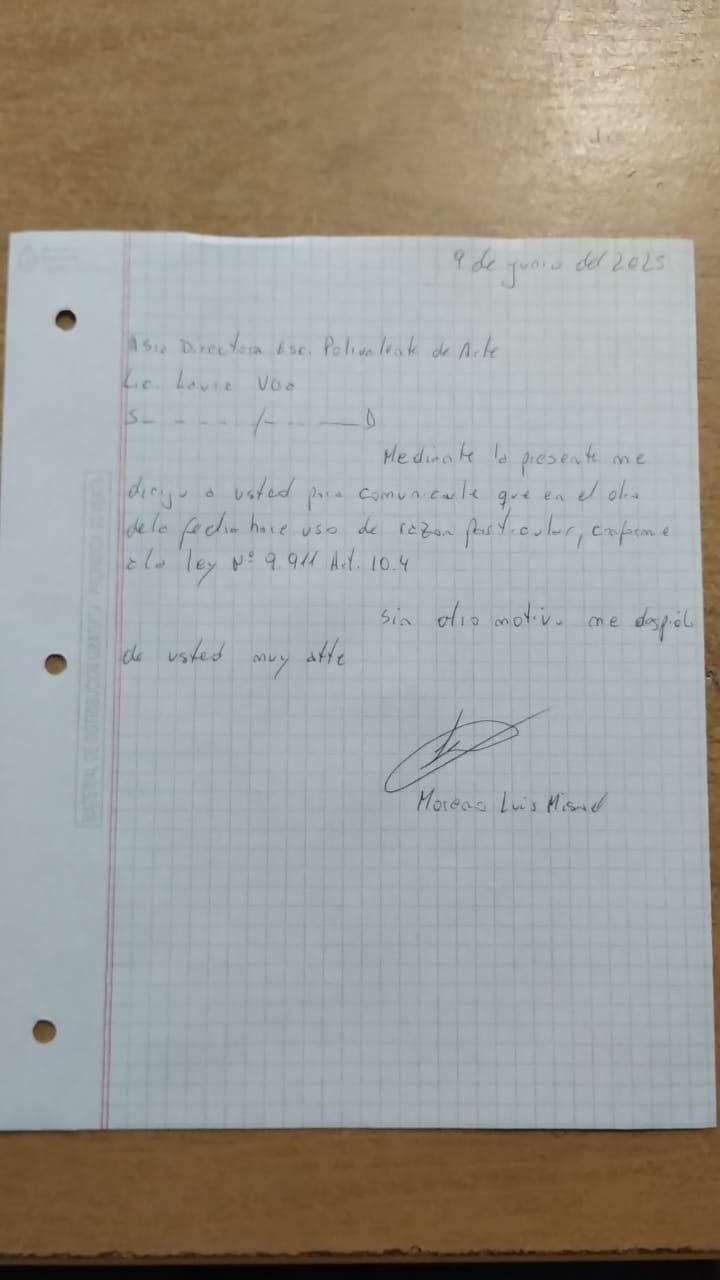 9 de junio del 2025
A Sra Directora Esc. Polivalente de Arte
Lic. Laura
S- - - - - /- - - - —D
Mediante la presente me
dirijo a usted para comunicarle que en el dia
de la fecha hace uso de razon particular, conforme
a la ley Nº 9.911 Art. 10.4
Sin otro motivo me despido
de usted muy atte
Moreno Luis Miguel
MATERIAL DE DISTRIBUCIÓN GRATUITA - PROHIBIDA SU VENTA